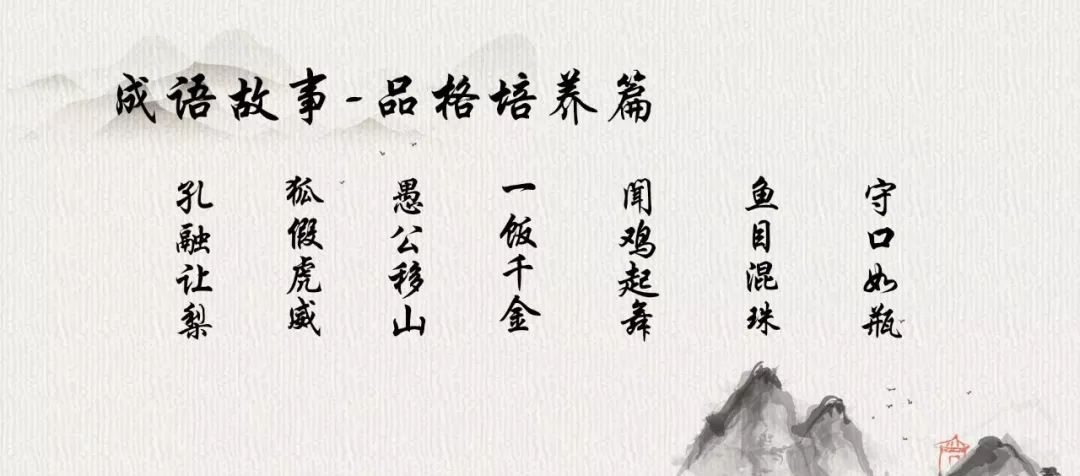 成语故事-品格培养篇
孔融让梨
狐假虎威
愚公移山
一饭千金
闻鸡起舞
鱼目混珠
守口如瓶